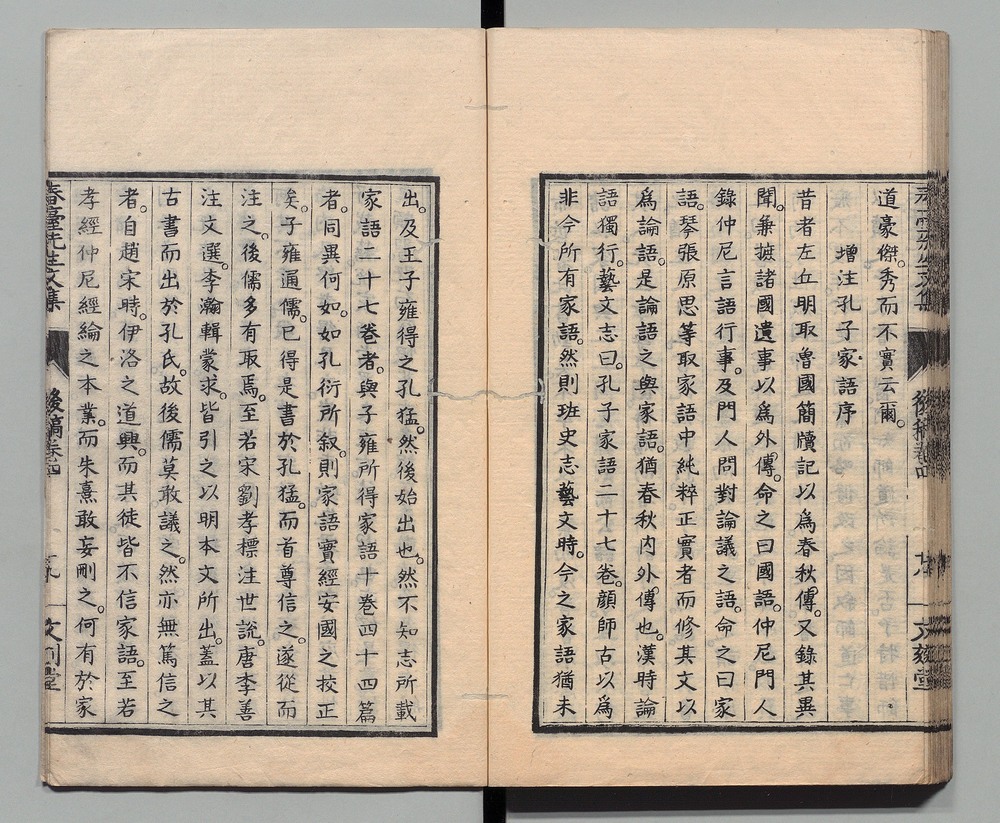 道豪傑。秀而不實云爾。
增注孔子家語序
昔者左丘明取魯國簡牘記以爲春秋傳。又錄其異
聞。兼摭諸國遺事以爲外傳。命之曰國語。仲尼門人
錄仲尼言語行事。及門人問對論議之語。命之曰家
語。琴張原思等取家語中純粹正實者而修其文以
爲論語。是論語之與家語。猶春秋內外傳也。漢時論
語獨行。藝文志曰。孔子家語二十七卷。顏師古以爲
非今所有家語。然則班史志藝文時。今之家語猶未
出。及王子雍得之孔猛。然後始出也。然不知志所載
家語二十七卷者。與子雍所得家語十卷四十四篇
者。同異何如。如孔衍所敘。則家語實經安國之挍正
矣。子雍通儒。已得是書於孔猛。而首尊信之。遂從而
注之。後儒多有取焉。至若宋劉孝標注世說。唐李善
注文選。李瀚輯蒙求。皆引之以明本文所出。蓋以其
古書而出於孔氏。故後儒莫敢議之。然亦無篤信之
者。自趙宋時。伊洛之道興。而其徒皆不信家語。至若
孝經仲尼經綸之本業。而朱熹敢妄刪之。何有於家
春臺先生文集
後稿卷四